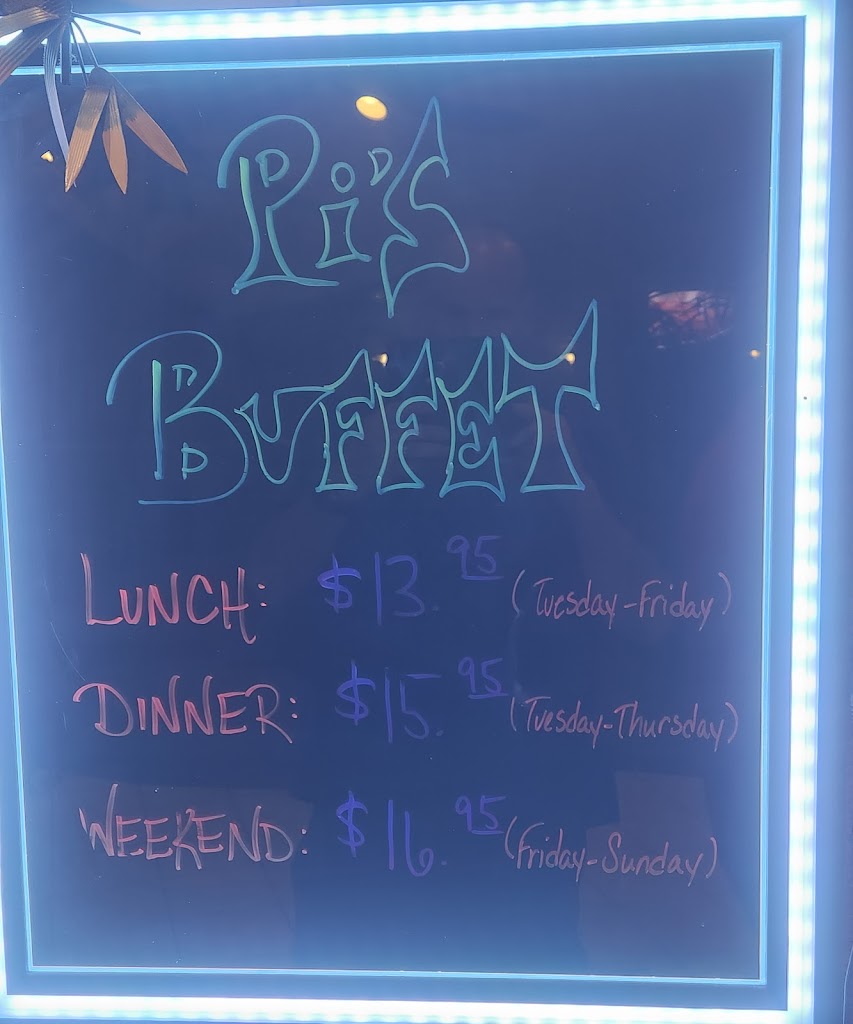 Pi's
BUFFET
LUNCH: $13.95 (Tuesday-Friday)
DINNER: $15.95 (Tuesday-Thursday)
WEEKEND: $16.95 (Friday-Sunday)